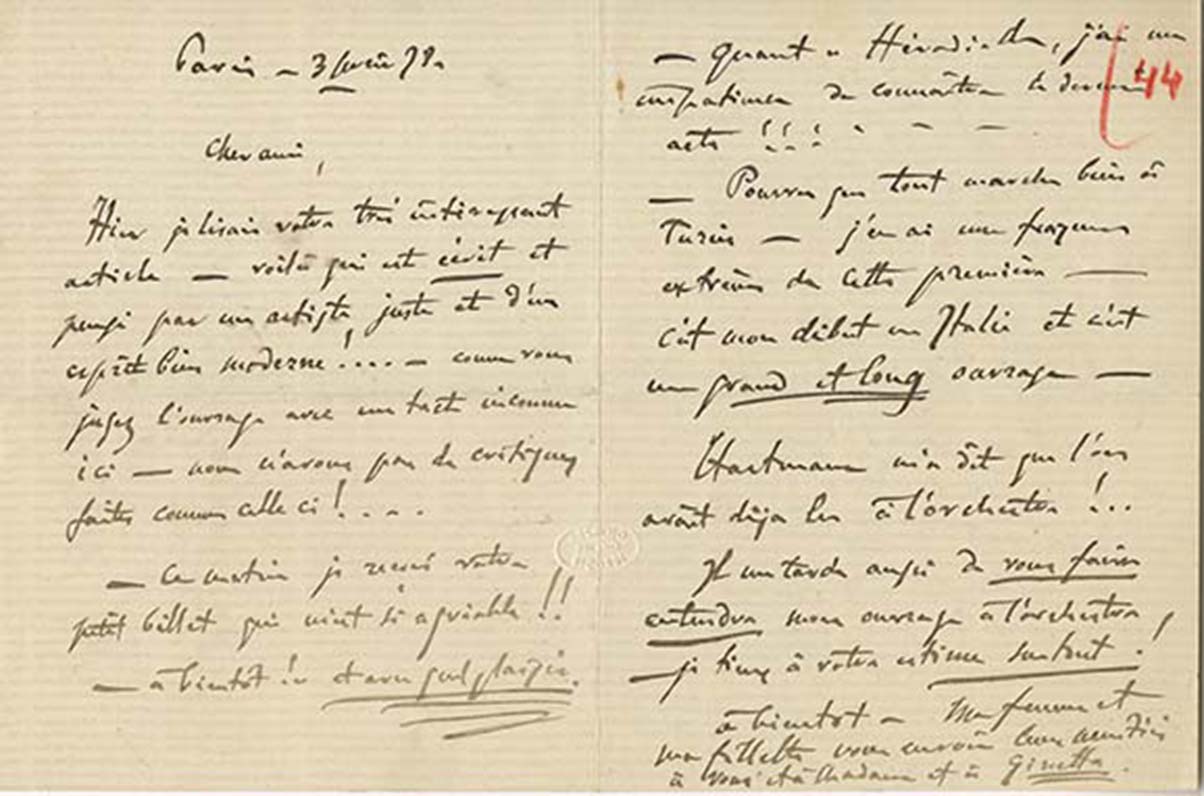 Paris – 3 Janvier 78.
Cher ami,
Hier je lisais votre très intéressant
article — voilà qui est écrit et
pensé par un artiste, juste et d'un
esprit bien moderne! .... – comme vous
jugez l'ouvrage avec un tact inconnu
ici — nous n'avons pas de critiques
faites comme celle ci! ....
— Ce matin je reçois votre
petit billet qui m'est si agréable!!
— à bientôt! et avec quel plaisir.
— quant à Hérodiade, j'ai une
impatience de connaître le dernier
acte !!!
44
— Pourvu que tout marche bien à
Turin — j'en ai une frayeur
extrême de cette première —
c'est mon début en Italie et c'est
un grand et long ouvrage —
Hartmann m'a dit que l'on
avait déjà lu à l'orchestre!..
Il me tarde aussi de vous faire
entendre mon ouvrage à l'orchestre,
— je tiens à votre estime surtout!
à bientôt – Ma femme et
ma fillette vous envoient leurs amitiés
à vous et à Madame et à Ginetta.